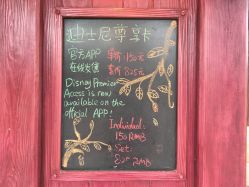 迪士尼尊享卡
官方APP 单所150元
在线发售 套所825元
Disney Premier
Access is now
available on the
official APP!
Individual:
150 RMB
Set:
825 RMB